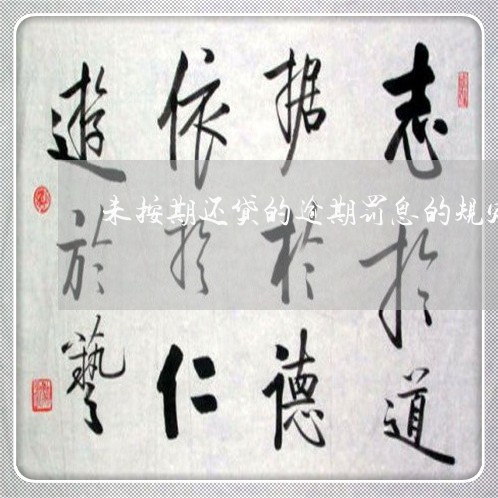 志於道
据於德
依於仁
遊於藝
未按期还贷的逾期罚息的规